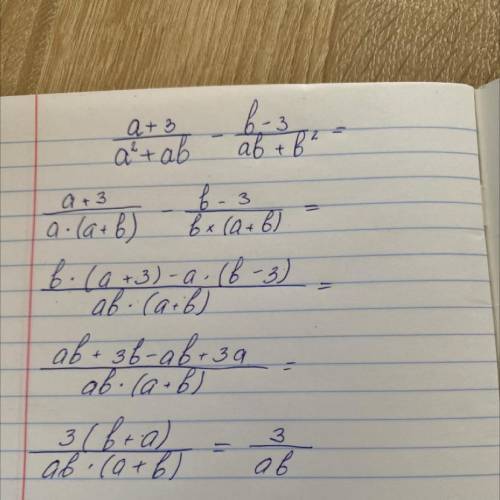 (a+3)/(a²+ab) - (b-3)/(ab+b²) =
(a+3)/(a·(a+b)) - (b-3)/(b×(a+b)) =
(b·(a+3)-a·(b-3))/(ab·(a+b)) =
(ab+3b-ab+3a)/(ab·(a+b)) =
(3(b+a))/(ab·(a+b)) = 3/(ab)